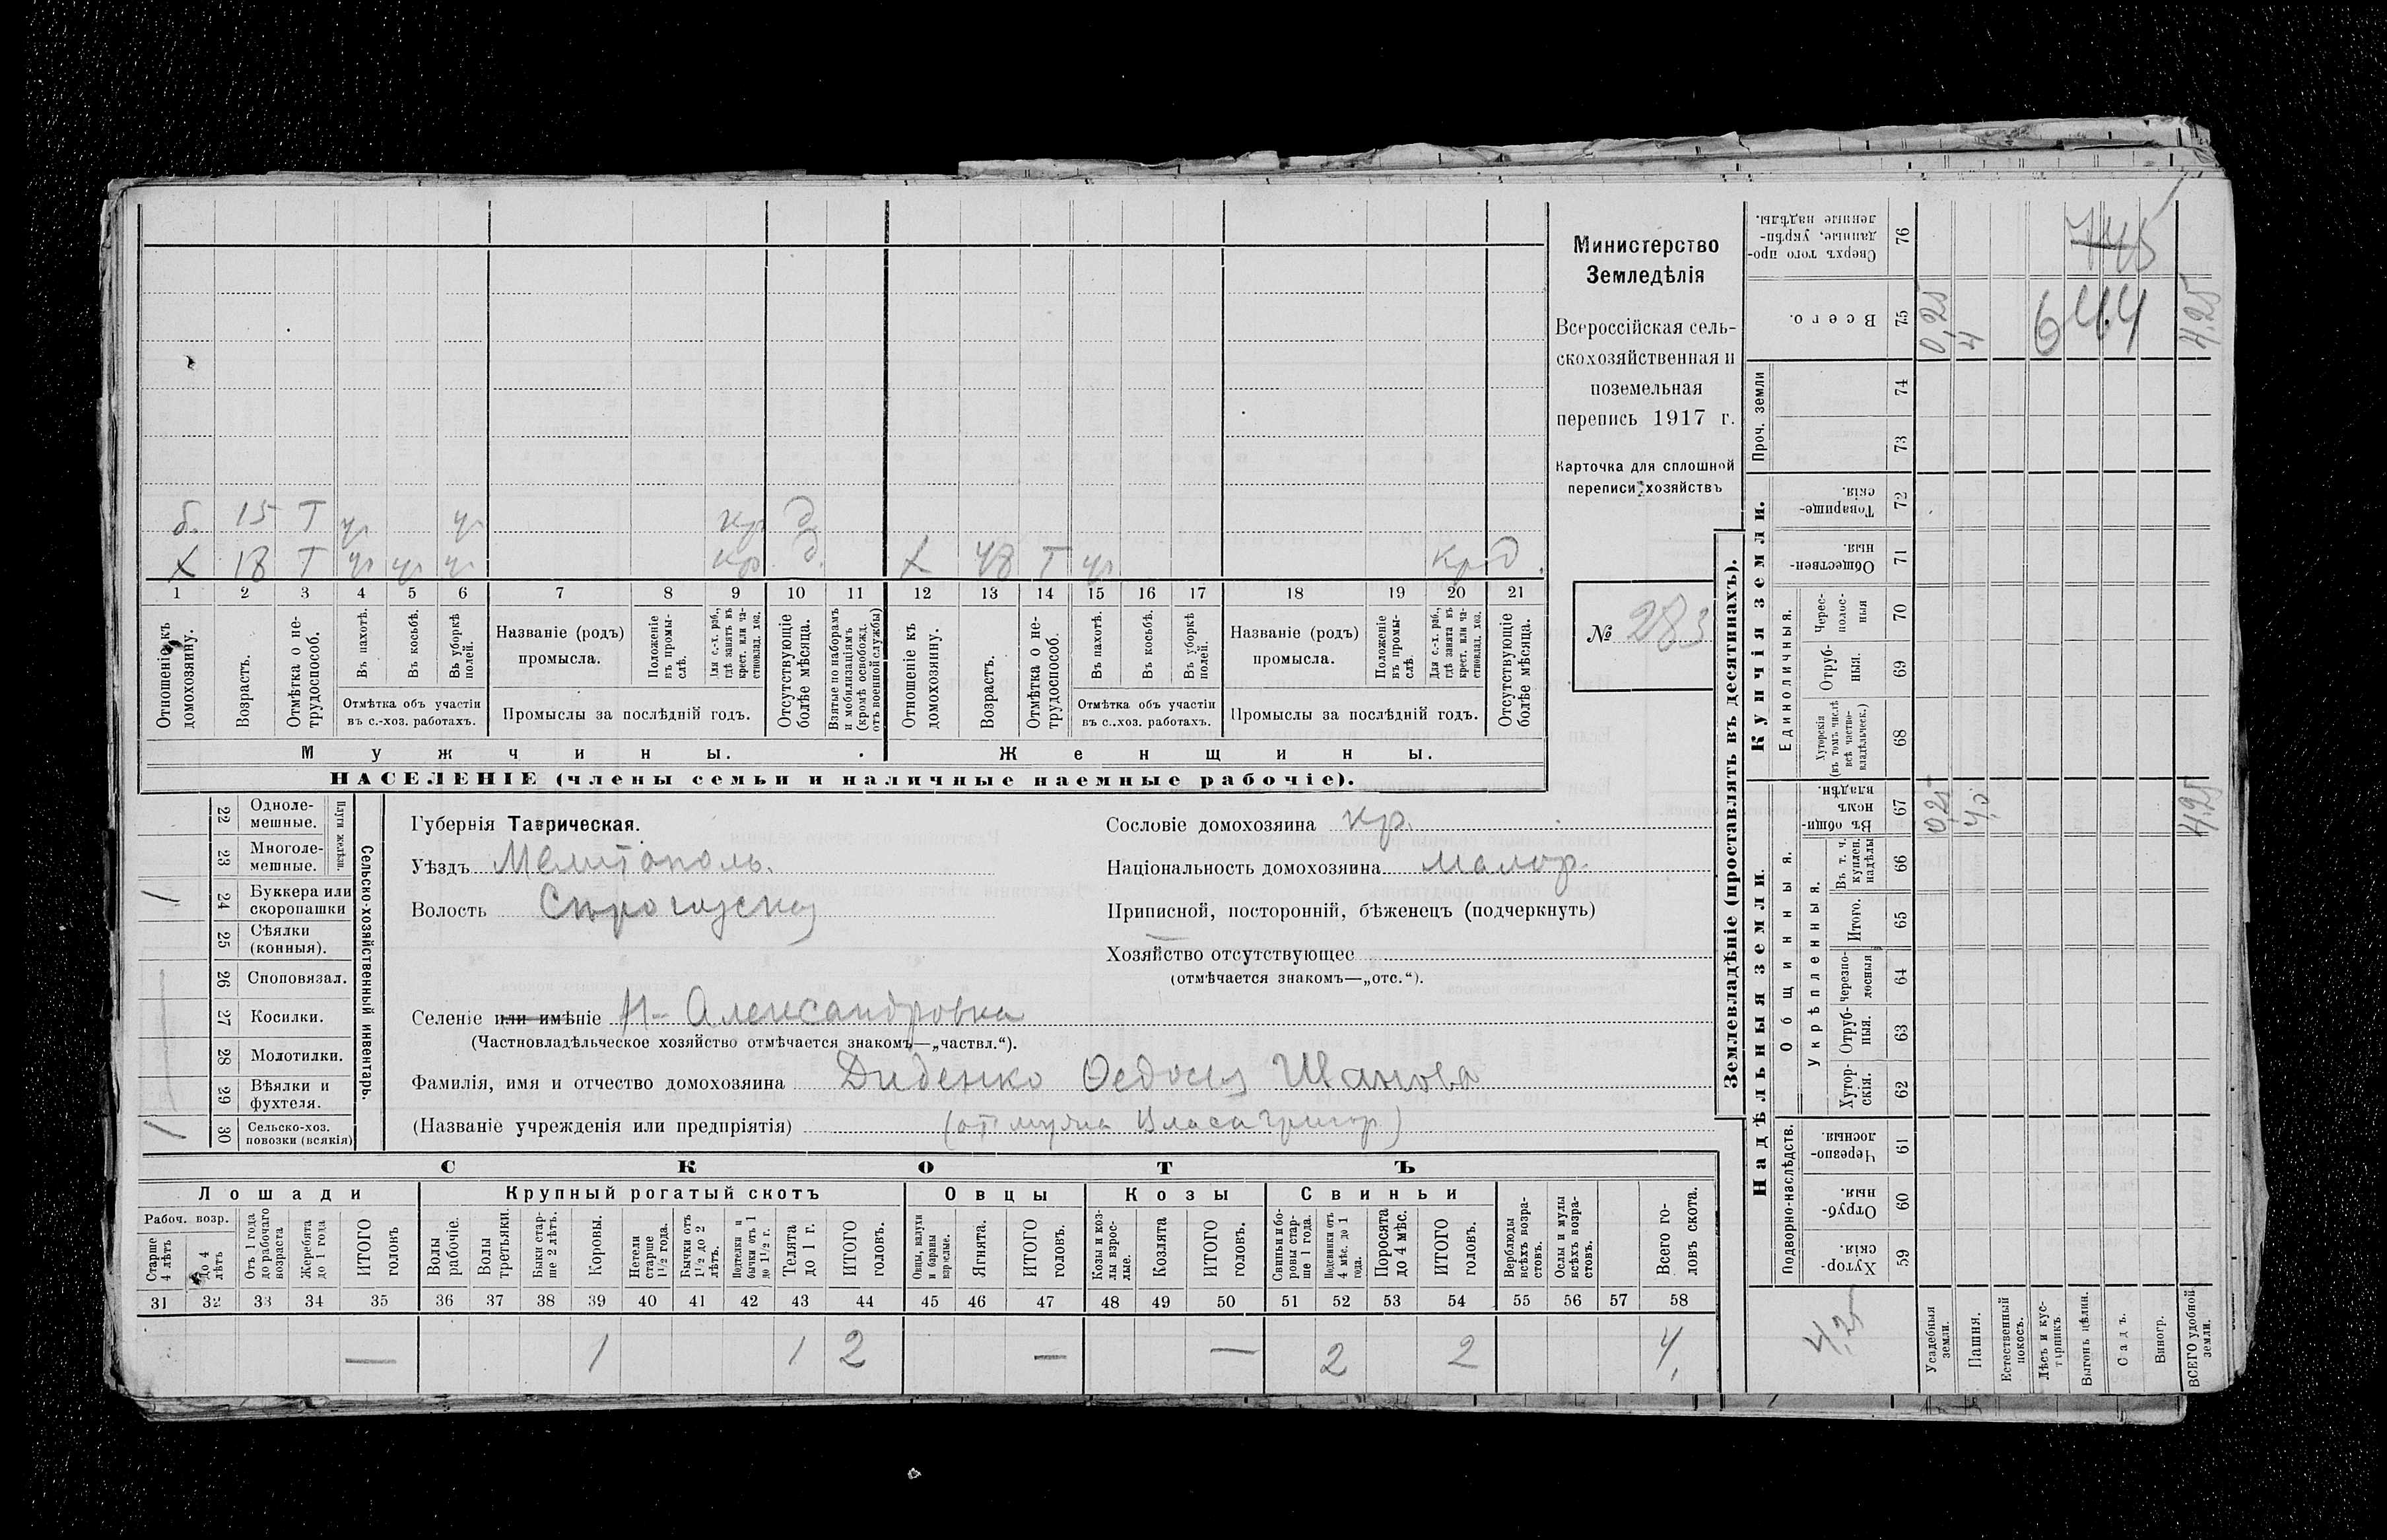 Министерство
Земледѣлія
Всероссійская сель-
скохозяйственная и
поземельная
перепись 1917 г.
Карточка для сплошной
переписи хозяйствъ
№ 283
б. 15 Т ур ур кр д
х 18 Т ур ур ур кр. д. х 48 Т ур кр д.
1 2 3 4 5 6 7 8 9 10 11 12 13 14 15 16 17 18 19 20 21
Отношеніе къ домохозяину.
Возрастъ.
Отмѣтка о не-трудоспособ.
Въ пахотѣ.
Въ косьбѣ.
Въ уборкѣ полей.
Отмѣтка объ участіи
въ с.-хоз. работахъ.
Названіе (родъ)
промысла.
Положеніе въ промы-слѣ.
Для с.-х. раб., гдѣ занятъ въ крест. или ча-стновлад. хоз.
Промыслы за послѣдній годъ.
Отсутствующіе болѣе мѣсяца.
Взятые по наборамъ и мобилизаціямъ (кромѣ освобожд. отъ военной службы)
Отношеніе къ домохозяину.
Возрастъ.
Отмѣтка о не-трудоспособ.
Въ пахотѣ.
Въ косьбѣ.
Въ уборкѣ полей.
Отмѣтка объ участіи
въ с..хоз. работахъ.
Названіе (родъ)
промысла.
Положеніе въ промы-слѣ.
Для с.-х. раб., гдѣ занята въ крест. или ча-стновлад. хоз.
Промыслы за послѣдній годъ.
Отсутствующіе болѣе мѣсяца.
Мужчины. Женщины.
НАСЕЛЕНІЕ (члены семьи и наличные наемные рабочіе).
22 Одноле-мешные.
23 Многоле-мешные.
Плуги желѣзн.
24 Буккера или скоропашки
25 Сѣялки (конныя).
26 Споповязал.
27 Косилки.
28 Молотилки.
29 Вѣялки и фухтеля.
30 Сельско-хоз. повозки (всякія)
Сельско-хозяйственный инвентарь.
1
1
Губернія Таврическая.
Уѣздъ Мелитополь.
Волость
Сословіе домохозяина кр.
Національность домохозяина малор.
Приписной, посторонній, бѣженецъ (подчеркнуть)
Хозяйство отсутствующее
(отмѣчается знакомъ—„отс.“).
Селеніе или имѣніе Н-Александровка
(Частновладѣльческое хозяйство отмѣчается знакомъ—„частвл.“).
Фамилія, имя и отчество домохозяина Диденко
(Названіе учрежденія или предпріятія) Власа Григор.)
СКОТЪ
Лошади Крупный рогатый скотъ Овцы Козы Свиньи
Рабоч. возр.
Старше 4 лѣтъ
до 4 лѣтъ
Отъ 1 года до рабочаго возраста
Жеребята до 1 года
ИТОГО головъ
Волы рабочіе.
Волы третьяки.
Быки стар-ше 2 лѣтъ.
Коровы.
Нетели старше 1½ года.
Бычки отъ 1½ до 2 лѣтъ.
Подтелки и бычки отъ 1 до 1½ г.
Телята до 1 г.
ИТОГО головъ.
Овцы, валухи и бараны взрослые.
Ягнята.
ИТОГО головъ.
Козы и коз-лы взрос-лые.
Козлята
ИТОГО головъ.
Свиньи и бо-ровы стар-ше 1 года.
Подсвинки отъ 4 мѣс. до 1 года.
Поросята до 4 мѣс.
ИТОГО головъ.
Верблюды всѣхъ возра-стовъ.
Ослы и мулы всѣхъ возра-стовъ.
Всего го-ловъ скота.
31 32 33 34 35 36 37 38 39 40 41 42 43 44 45 46 47 48 49 50 51 52 53 54 55 56 57 58
— 1 1 2 — — 2 2 4.
Землевладѣніе (проставлять въ десятинахъ).
76 Сверхъ того про-данные, укрѣп-ленные надѣлы.
745
75 Всего.
0,25 4 4,25
644
Проч. земли
74
73
Купчія земли.
72 Товарище-скія.
71 Обществен-ныя.
Единоличныя.
70 Черес-полос-ныя
69 Отруб-ныя.
68 Хуторскія (въ томъ числѣ всѣ частно-владѣльческ.)
Надѣльныя земли.
Общинныя.
67 Въ общи-номъ владѣн.
0,25 4,0 4,25
66 Въ т. ч. куплен. надѣлы
Укрѣпленныя.
65 Итого.
64 Черезпо-лосныя
63 Отруб-ныя.
62 Хутор-скія.
Подворно-наслѣдств.
61 Черезпо-лосныя.
60 Отруб-ныя.
59 Хутор-скія.
4,25
Усадебныя земли.
Пашня.
Естественный покосъ.
Лѣсъ и кус-тарникъ
Выгонъ цѣлин.
Садъ.
Виногр.
ВСЕГО удобной земли.